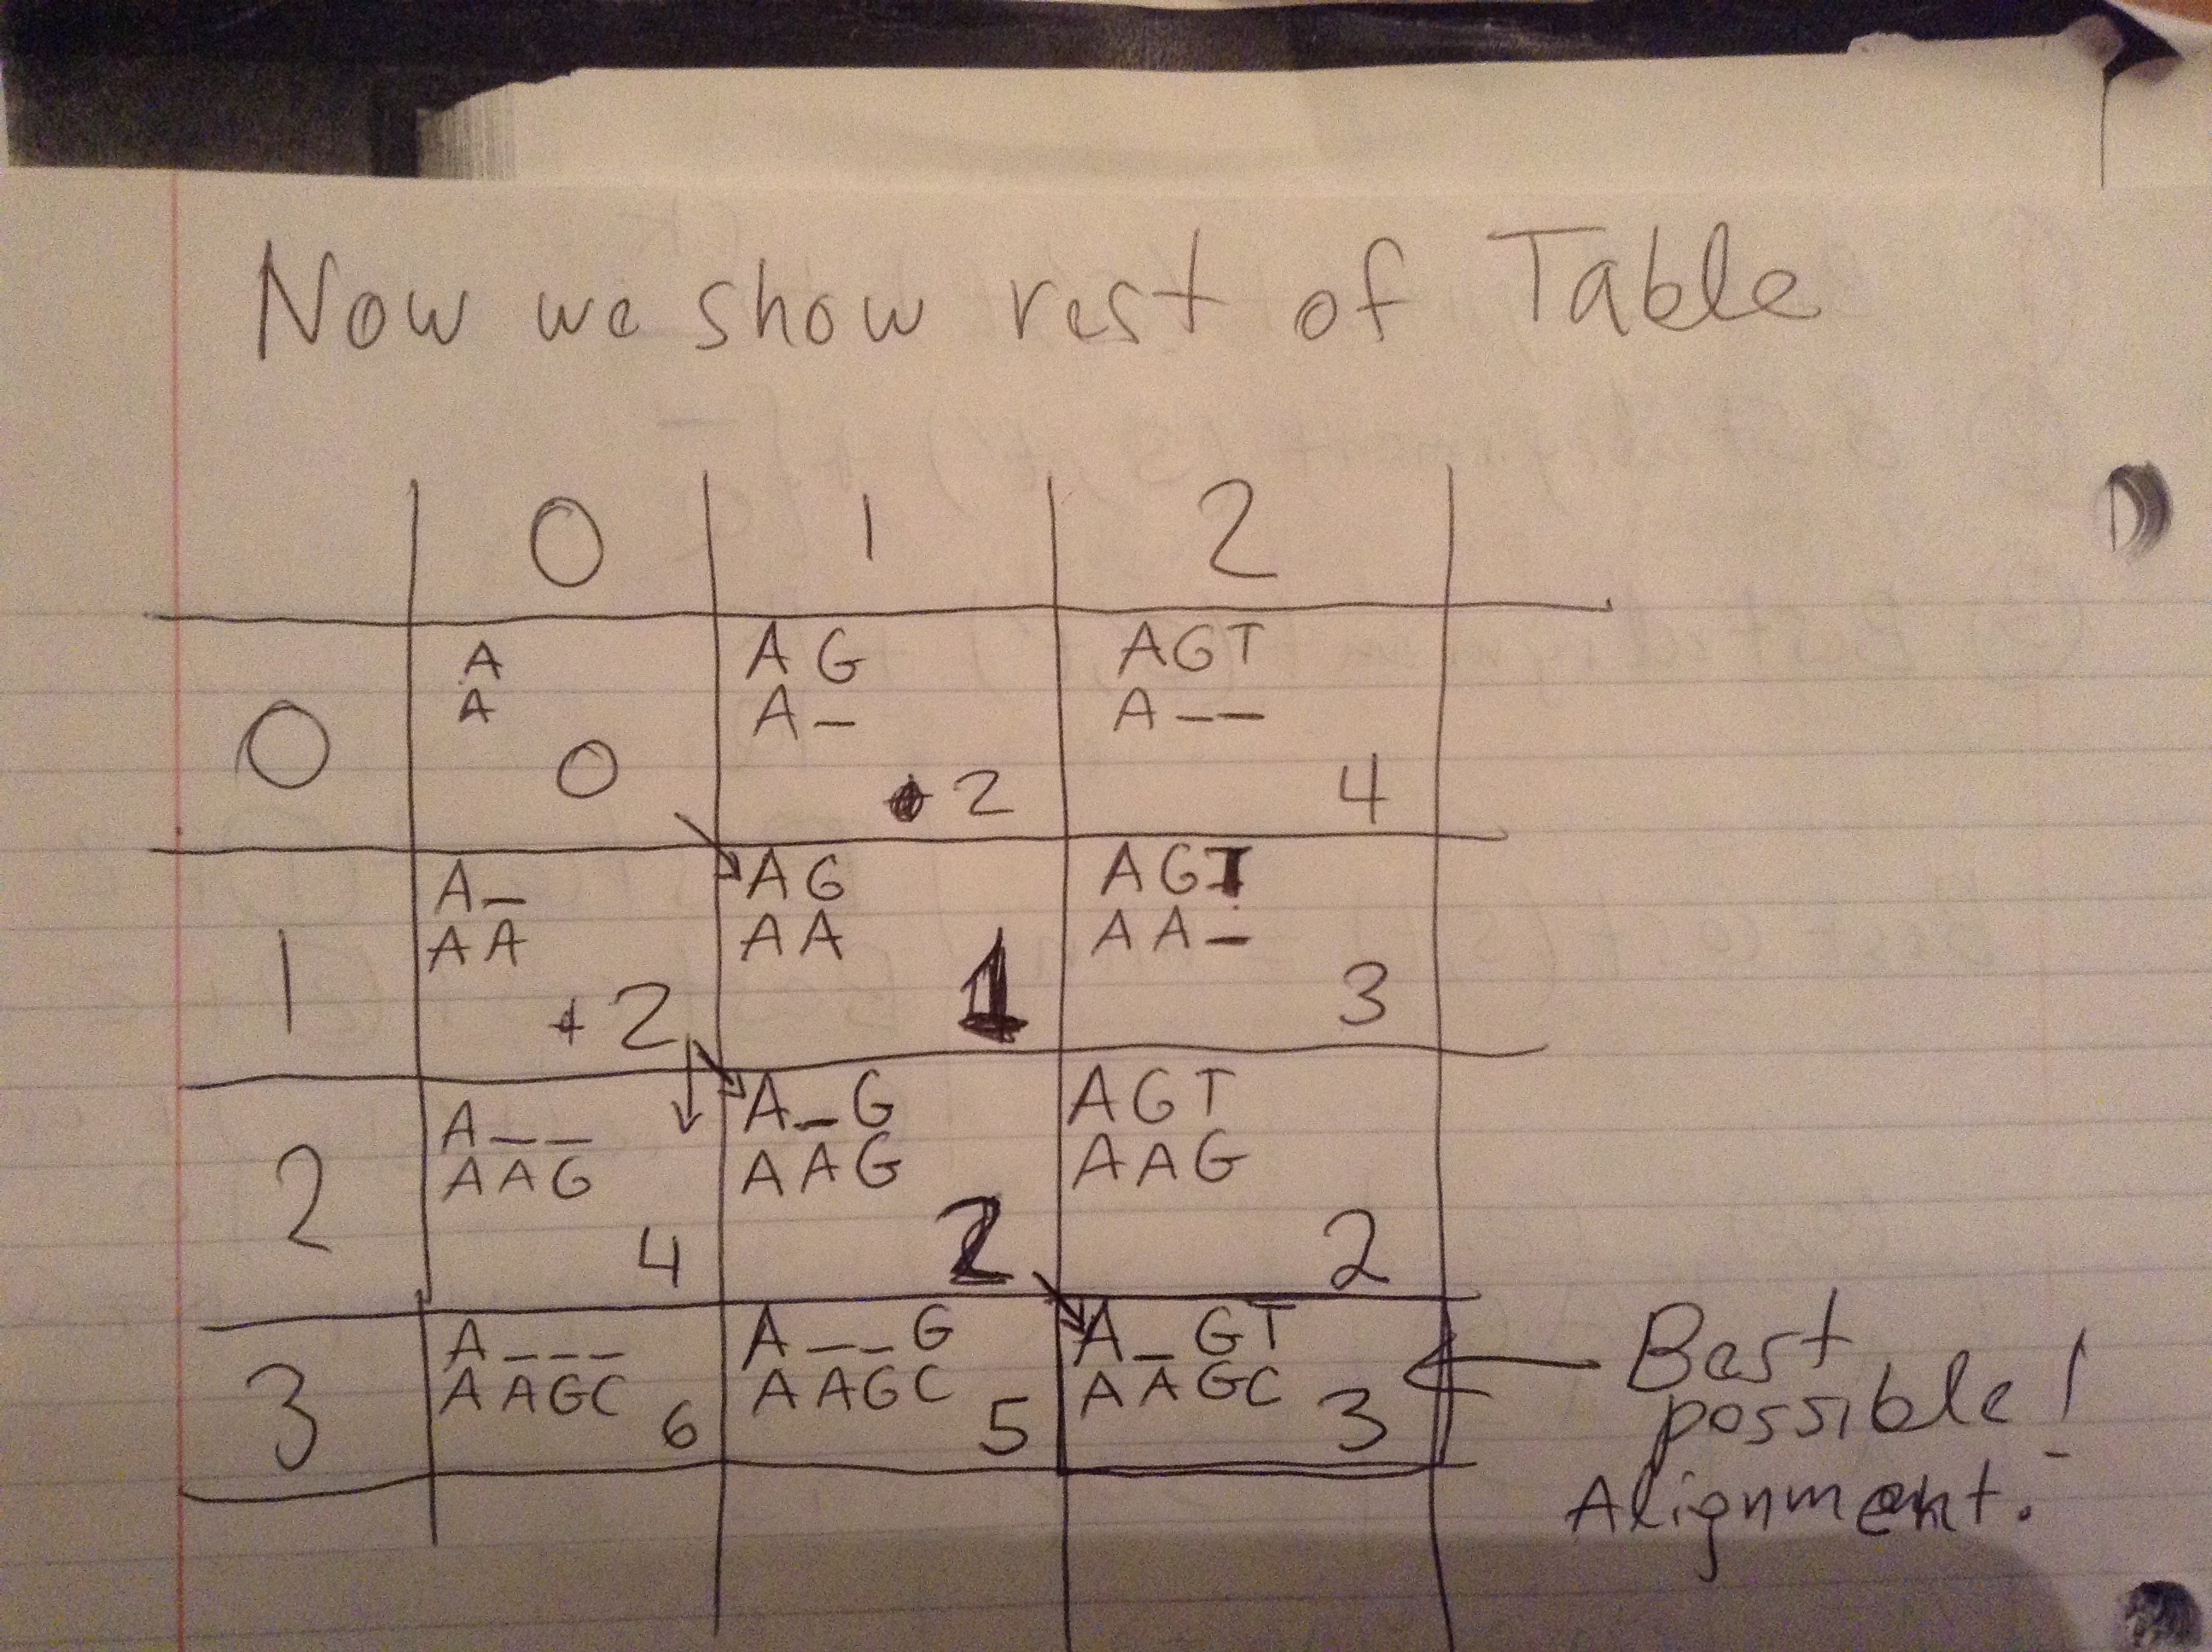 Now we show rest of Table
0 1 2
0
A
A
0
A G
A _
2
AGT
A _ _
4
1
A _
A A
+2
A G
A A
1
AGT
A A _
3
2
A _ _
A A G
4
A _ G
A A G
2
AGT
AAG
2
3
A _ _ _
A A G C
6
A _ _ G
A A G C
5
A _ G T
A A G C
3
Best
possible!
Alignment.